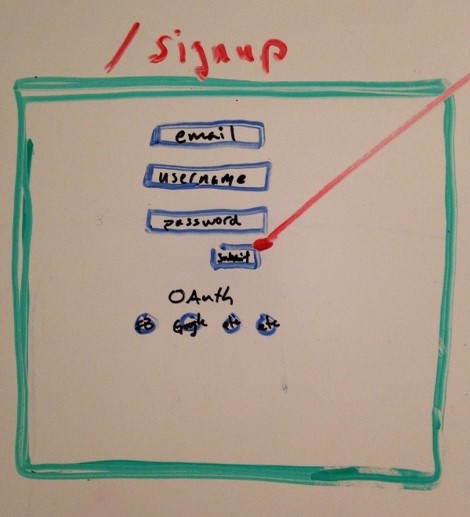 /signup
email
username
password
submit
OAuth
FB Google etc etc